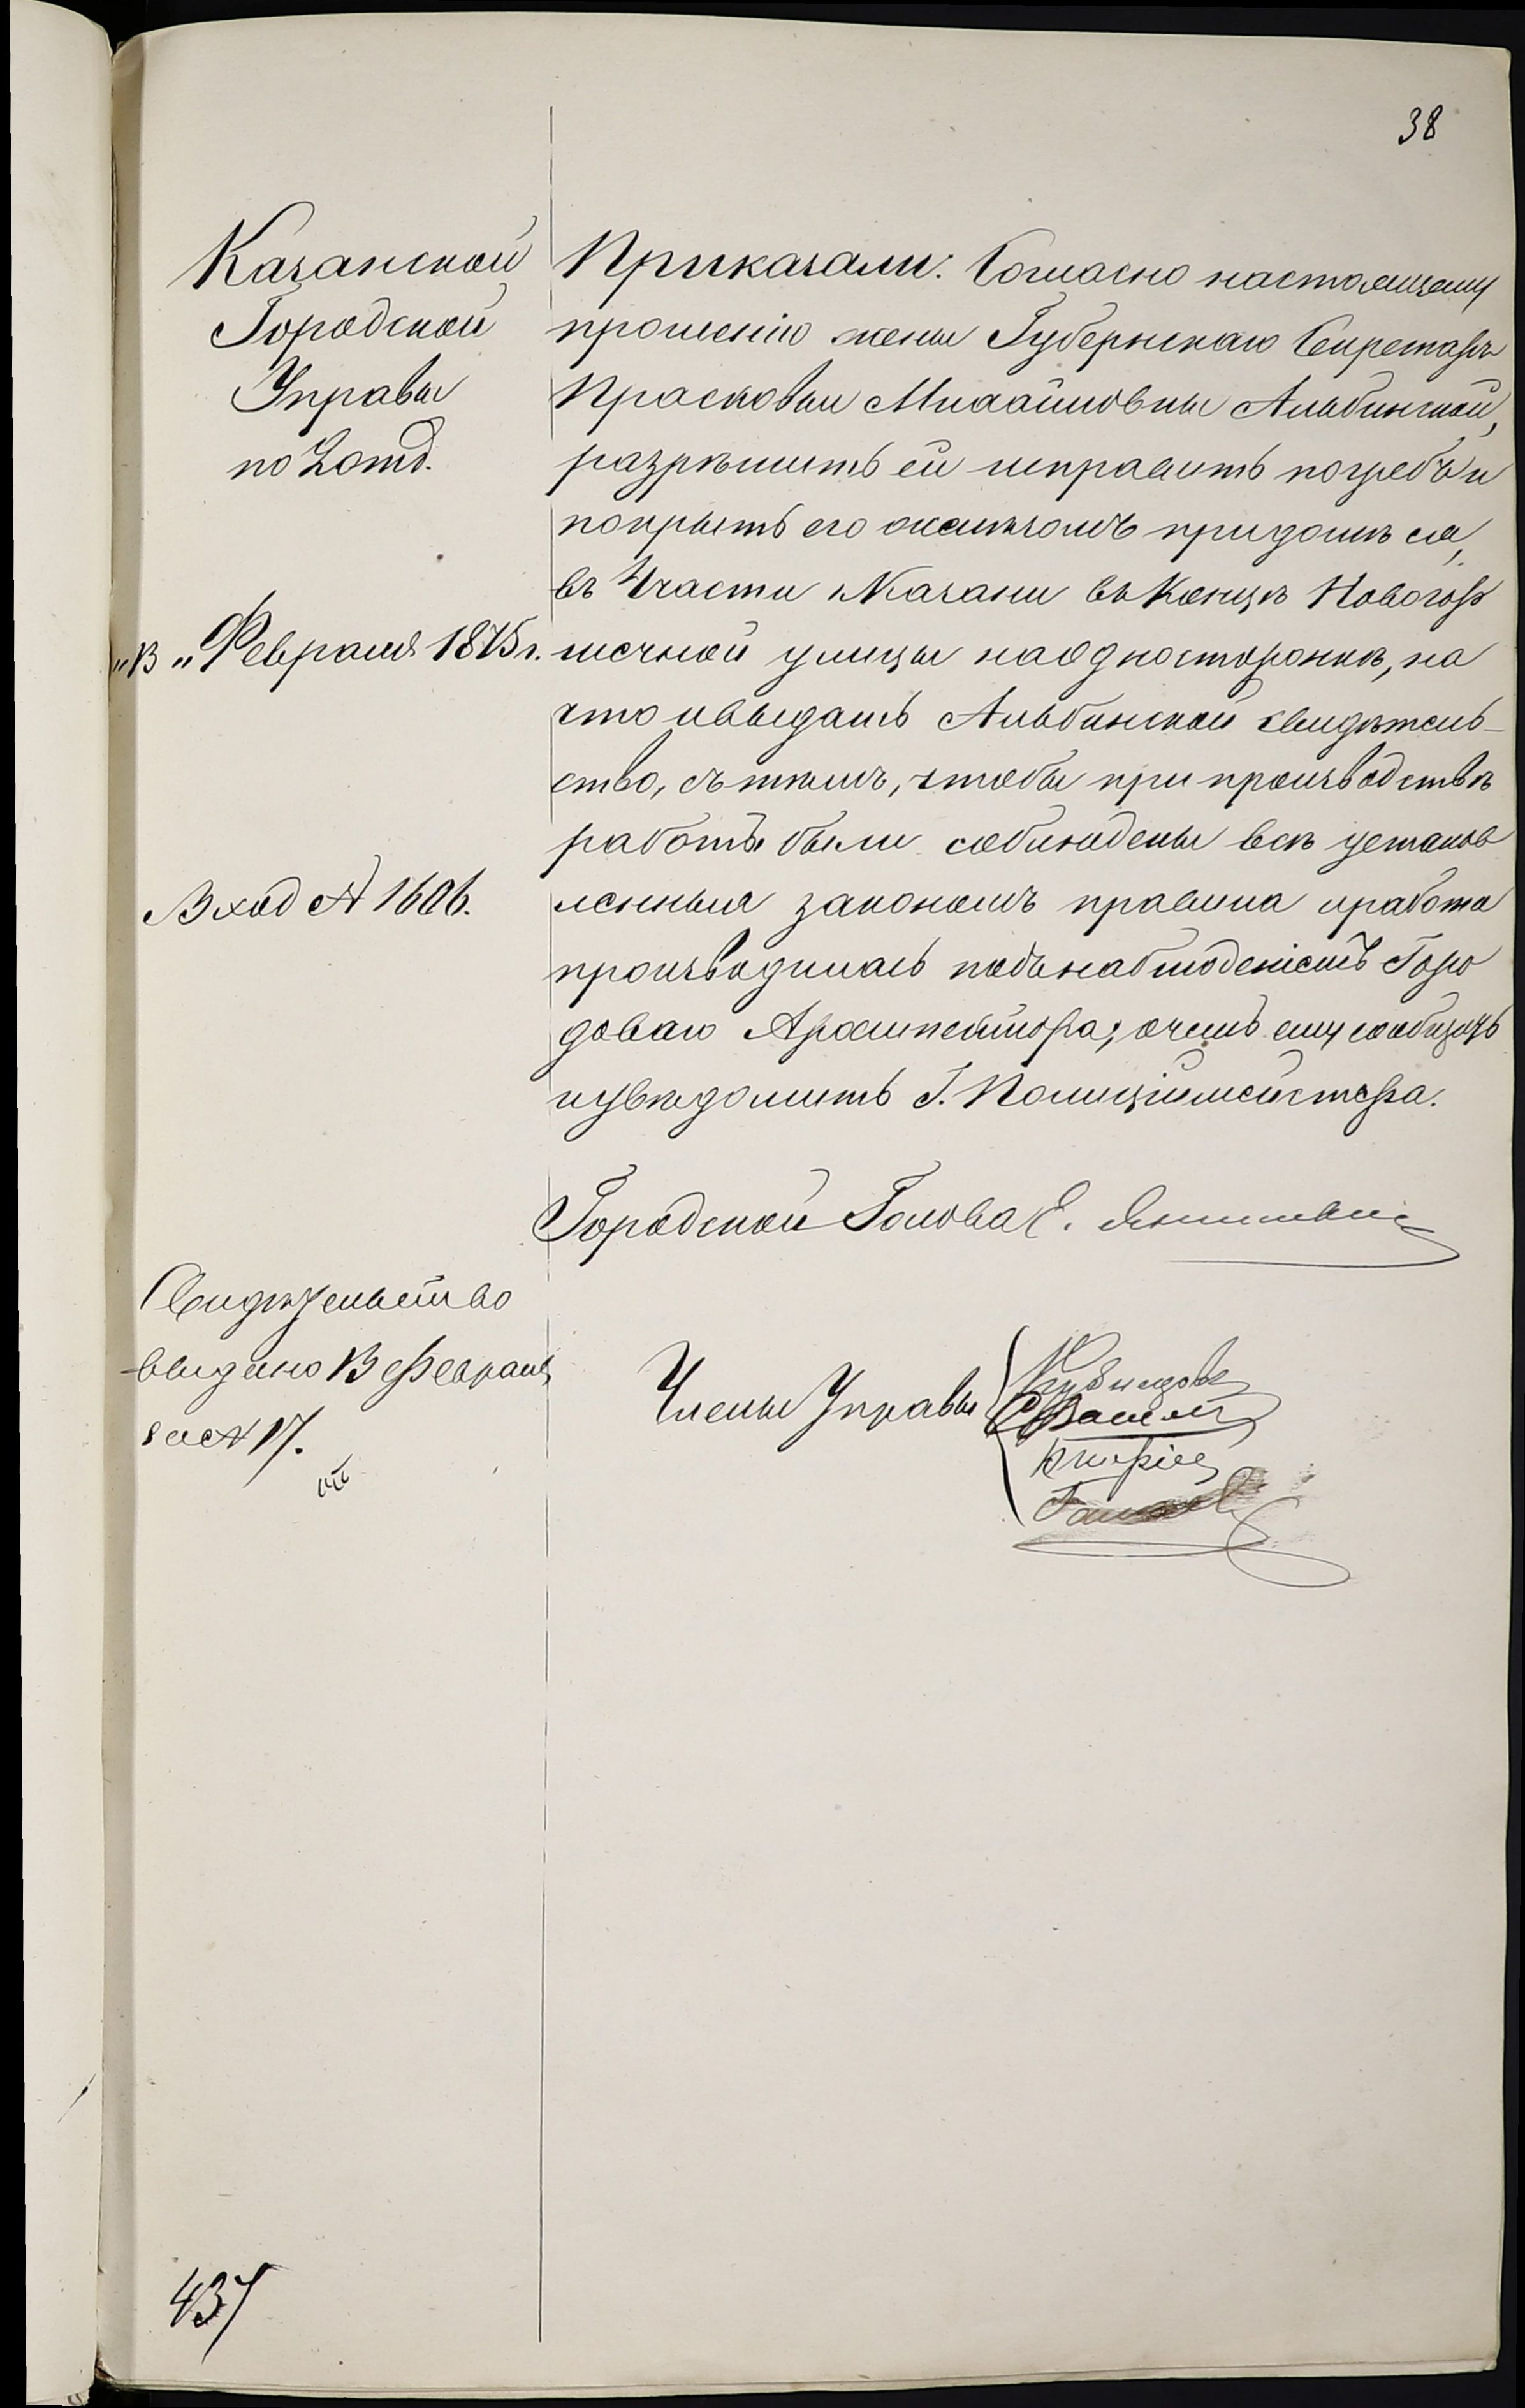 38
Казанской
Городской
Управы
по 2 отд.
"13" Февраля 1875 г.
Вход № 1606.
Свидѣтельство
выдано 13 Февраля
за № 17.
437
Приказали: Согласно настоящему
прошенію жены Губернскаго Секретаря
Прасковьи Михайловны Альбинской,
разрѣшить ей исправить погребъ и
покрыть его желѣзомъ при домѣ ея,
въ 4 части г. Казани въ концѣ Новогор
шечной улицы на одностороннѣ, на
что и выдать Альбинской свидѣтель-
ство, съ тѣмъ, чтобы при производствѣ
работъ были соблюдены всѣ установ
ленныя закономъ правила и работа
производилась подъ наблюденіемъ Горо
доваго Архитектора; о чемъ ему сообщить
и увѣдомить Г. Полиціймейстера.
Городской Голова Е. Янишевскій
Члены Управы